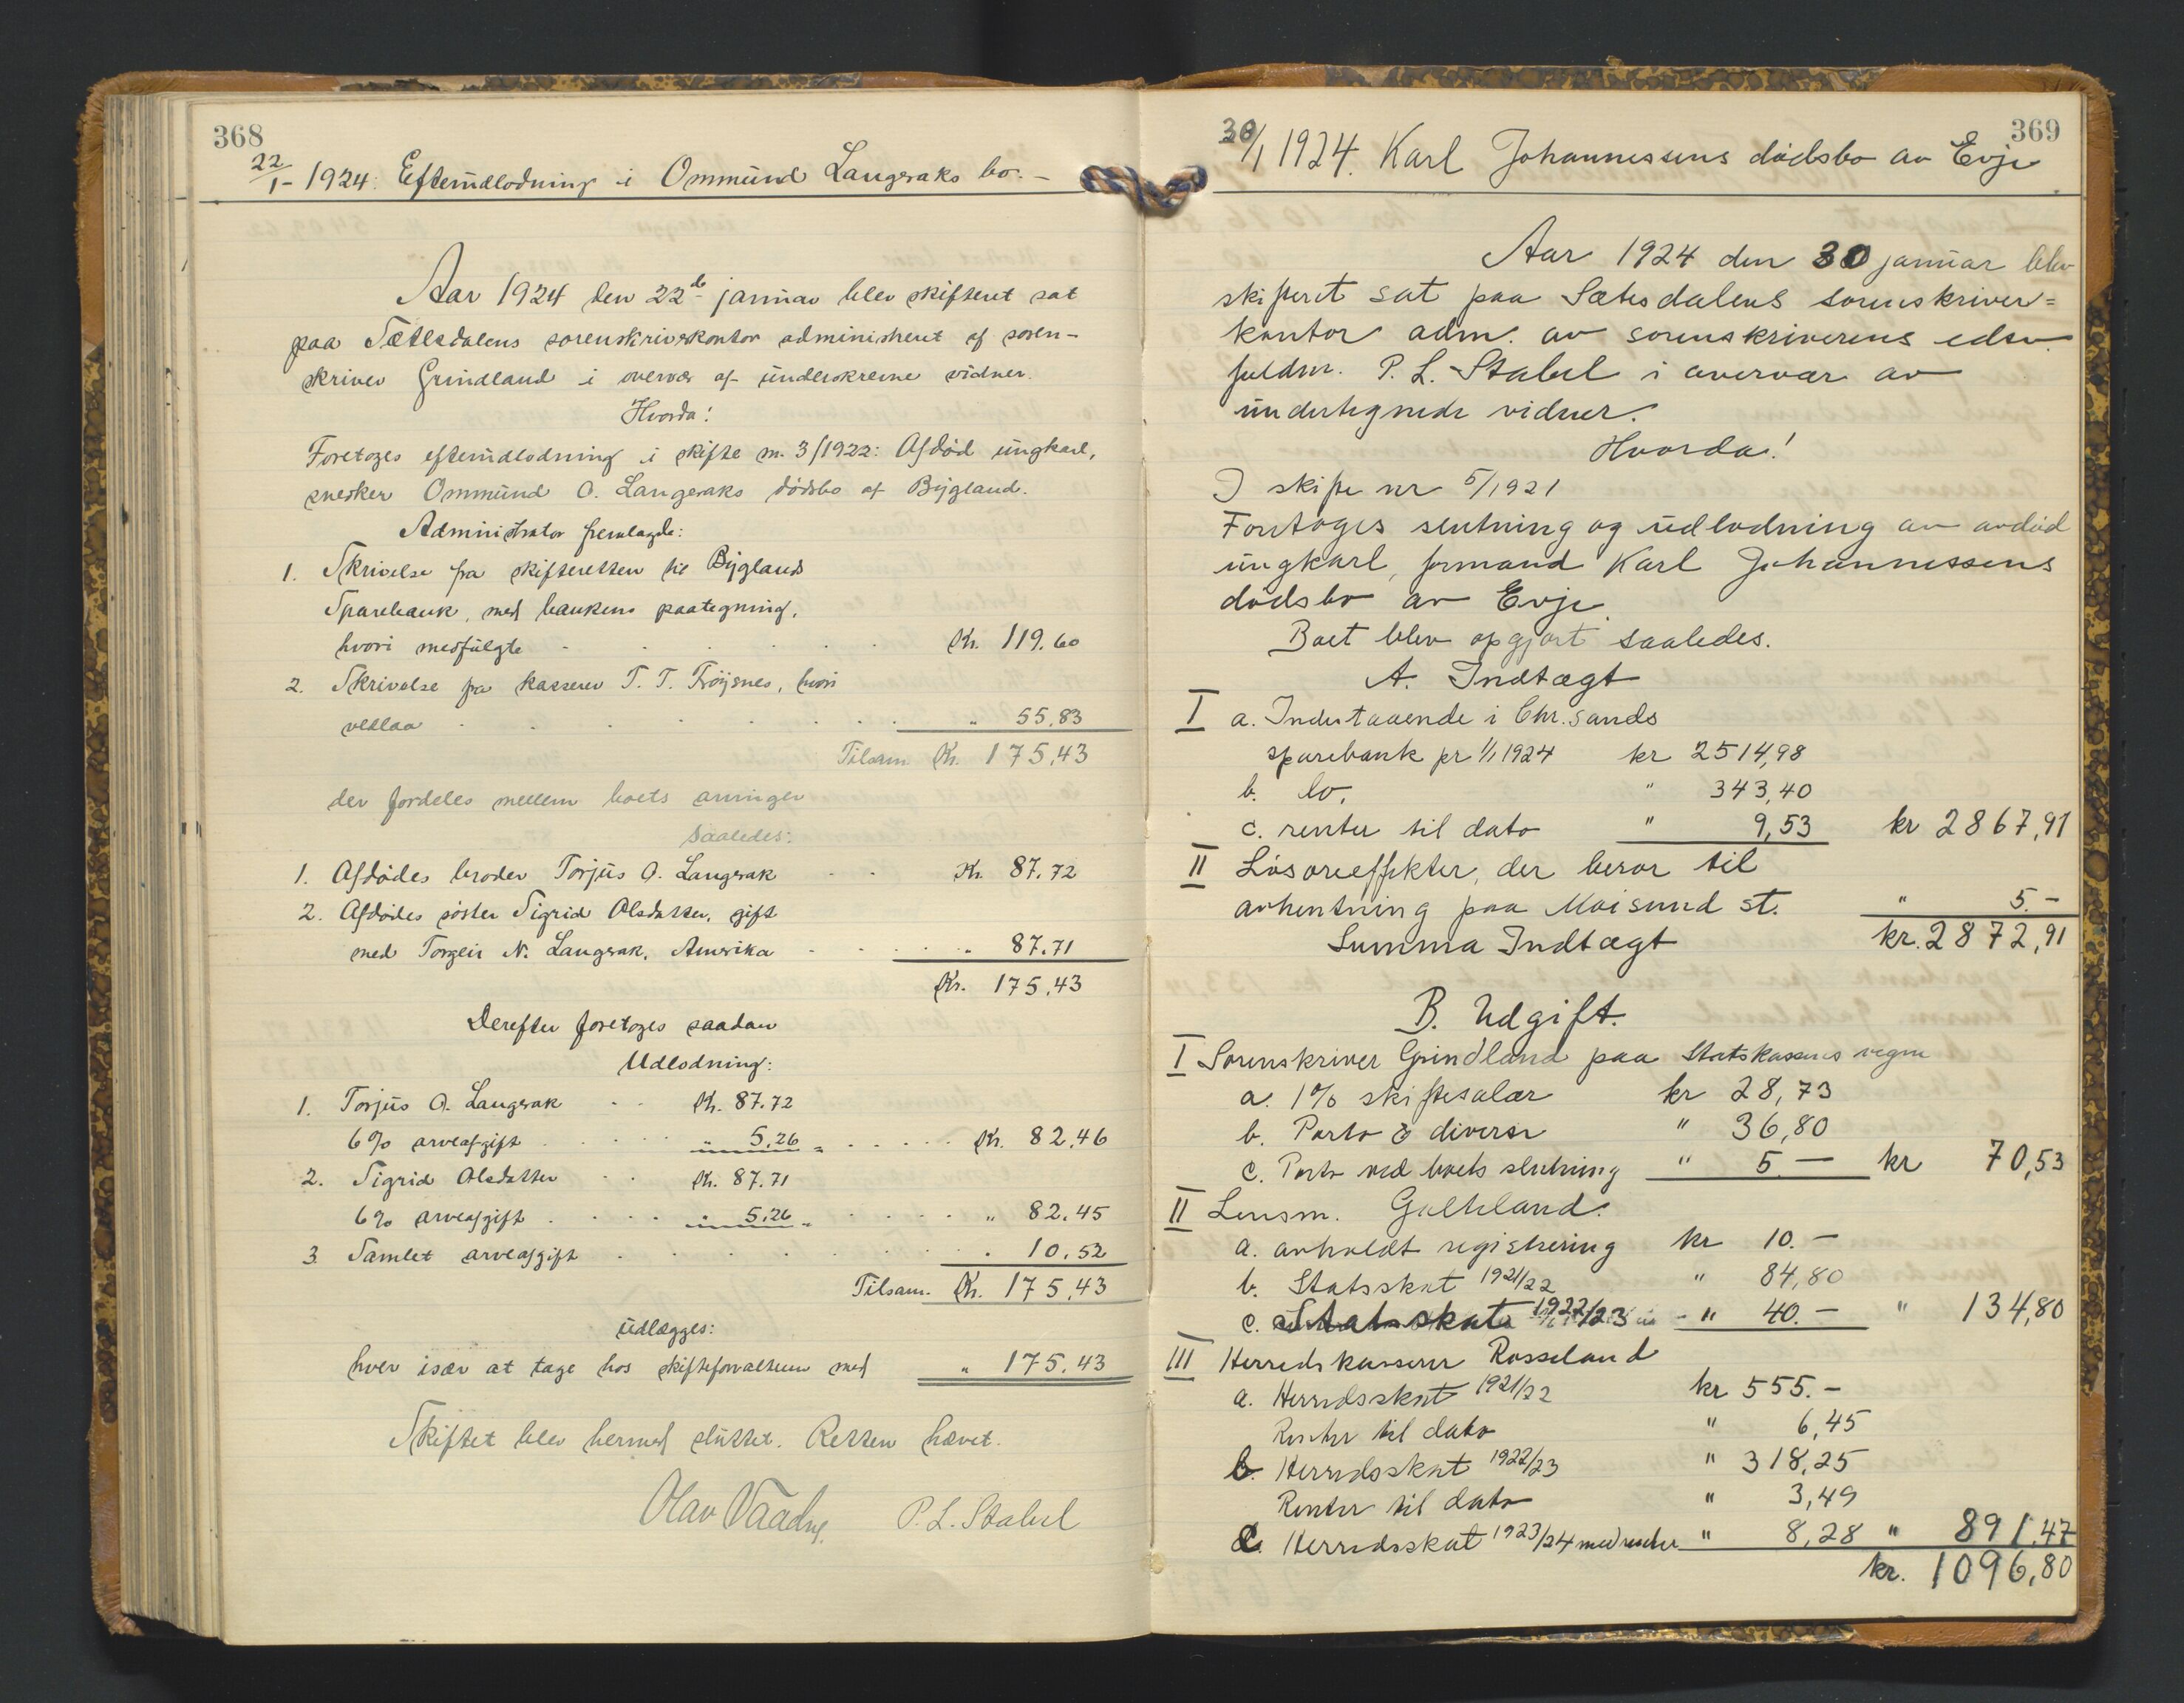 368
22/1- 1924: Efterudlodning i Ommund Langeraks bo. -
Aar 1924 den 22de januar blev skifteret sat
paa Sætesdalens sorenskriverkontor administreret af soren-
skriver Grindland i overvær af underskrevne vidner.
Hvorda!
Foretoges efterudlodning i skifte nr. 3/1922: Afdød ungkarl,
snedker Ommund O. Langeraks dødsbo af Bygland.
Administrator fremlagde:
1. Skrivelse fra skifteretten til Byglands
Sparebank, med bankens paategning,
hvori medfulgte Kr. 119.60
2. Skrivelse fra kasserer T. T. Frøysnes, hvori
vedlaa " 55,83
Tilsam. Kr. 175,43
der fordeles mellem boets arvinger
saaledes:
1. Afdødes broder Torjus O. Langerak Kr. 87.72
2. Afdødes søster Sigrid Olsdatter, gift
med Torgeir N. Langerak, Amerika " 87.71
Kr. 175.43
Derefter foretoges saadan
Udlodning:
1. Torjus O. Langerak Kr. 87.72
6% arveafgift " 5.26 = Kr. 82.46
2. Sigrid Olsdatter Kr. 87.71
6% arveafgift " 5.26 " 82.45
3 Samlet arveafgift " 10.52
Tilsam. Kr. 175.43
udlægges:
hver især at tage hos skifteforvalteren med " 175.43
Skiftet blev hermed sluttet. Retten hævet.
Olav P. L. Stabel
369
30/1 1924. Karl Johannessens dødsbo av Evje
Aar 1924 den 30 januar blev
skifteret sat paa Sætesdalens sorenskriver=
kontor adm. av sorenskriverens edsv.
fuldm. P. L. Stabel i overvær av
undertegnede vidner.
Hvorda!
I skifte nr 5/1921
Foretoges slutning og udlodning av avdød
ungkarl, formand Karl Johannessens
dødsbo av Evje.
Boet blev opgjort saaledes.
A. Indtægt
I a. Indestaaende i Chr.sands
sparebank pr 1/1 1924 kr 2514,98
b. do. " 343,40
c. renter til dato " 9,53 kr 2867,91
II Løsøreeffekter, der beror til
avhentning paa Moisund st. " 5.-
Summa Indtægt kr. 2872,91
B. Udgift.
I Sorenskriver Grindland paa Statskassens vegne
a. 1% skiftesalær kr 28,73
b. Porto & diverse " 36,80
c. Porto ved boets slutning " 5.— kr 70,53
II Lensm. Galteland.
a. avholdt registrering kr 10.-
b. Statsskat 1921/22 " 84,80
c. Statsskat 1922/23 - " 40.- " 134,80
III Herredskasserer Rosseland
a. Herredsskat 1921/22 kr 555.-
Renter til dato " 6,45
b. Herredsskat 1922/23 " 318,25
Renter til dato " 3,49
c. Herredsskat 1923/24 med renter " 8,28 " 891.47
kr. 1096,80